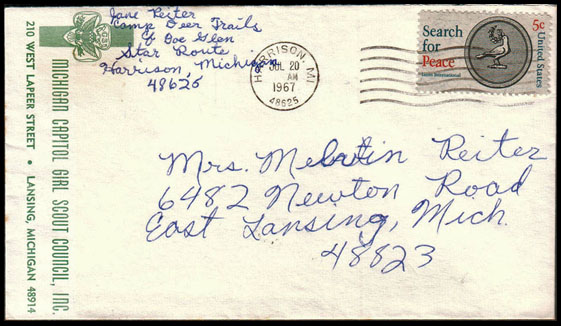 Jane Reiter
Camp Deer Trails
Star Route
Harrison, Michigan
48625
HARRISON, MI
JUL 20
AM
1967
48625
Search
for
Peace
Lions International
5c
United States
MICHIGAN CAPITOL GIRL SCOUT COUNCIL, INC.
210 WEST LAPEER STREET • LANSING, MICHIGAN 48914
Mrs. Melvin Reiter
6482 Newton Road
East Lansing, Mich.
48823